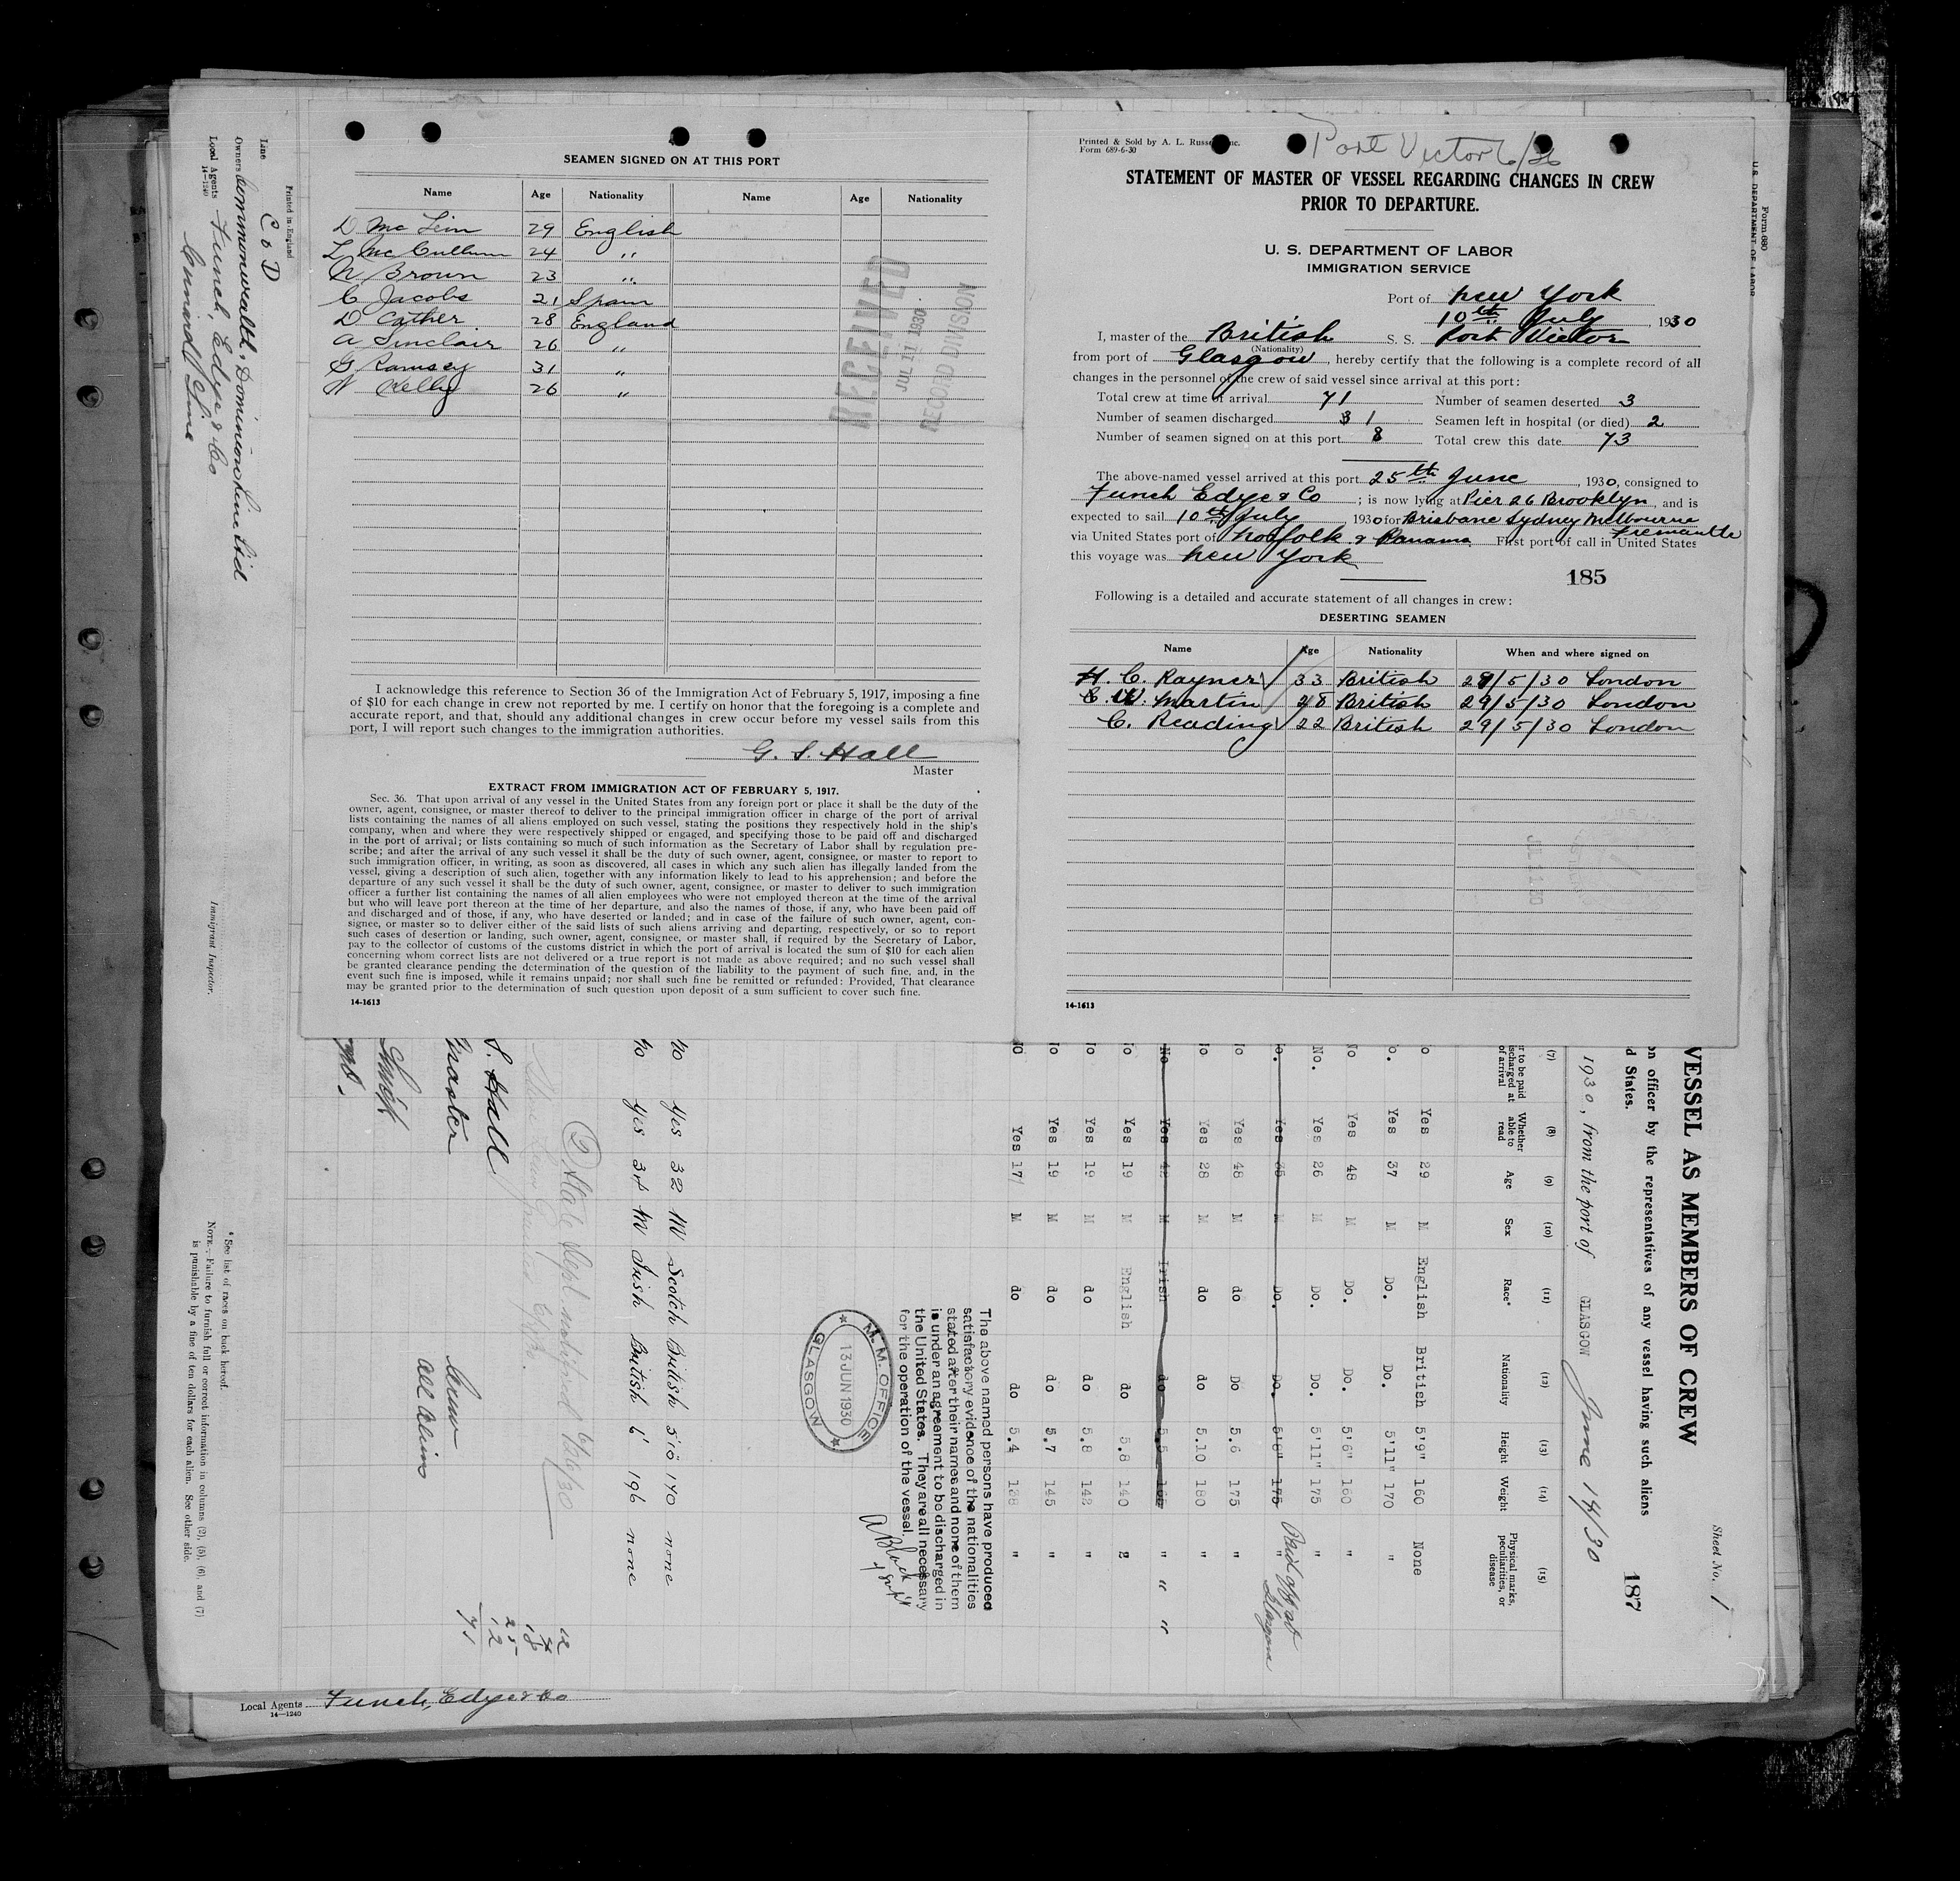 SEAMEN SIGNED ON AT THIS PORT
Name Age Nationality Name Age Nationality
D Mc 29 English
L Mc Cullum 24 "
N Brown 23 "
C Jacobs 21 Spain
D Cather 28 England
A Sinclair 26 "
G Ramsey 31 "
W Kelly 26 "
RECEIVED
JUL 11 1930
RECORD DIVISION
I acknowledge this reference to Section 36 of the Immigration Act of February 5, 1917, imposing a fine
of $10 for each change in crew not reported by me. I certify on honor that the foregoing is a complete and
accurate report, and that, should any additional changes in crew occur before my vessel sails from this
port, I will report such changes to the immigration authorities.
G. S. Hall
Master
EXTRACT FROM IMMIGRATION ACT OF FEBRUARY 5, 1917.
Sec. 36. That upon arrival of any vessel in the United States from any foreign port or place it shall be the duty of the
owner, agent, consignee, or master thereof to deliver to the principal immigration officer in charge of the port of arrival
lists containing the names of all aliens employed on such vessel, stating the positions they respectively hold in the ship's
company, when and where they were respectively shipped or engaged, and specifying those to be paid off and discharged
in the port of arrival; or lists containing so much of such information as the Secretary of Labor shall by regulation pre-
scribe; and after the arrival of any such vessel it shall be the duty of such owner, agent, consignee, or master to report to
such immigration officer, in writing, as soon as discovered, all cases in which any such alien has illegally landed from the
vessel, giving a description of such alien, together with any information likely to lead to his apprehension; and before the
departure of any such vessel it shall be the duty of such owner, agent, consignee, or master to deliver to such immigration
officer a further list containing the names of all alien employees who were not employed thereon at the time of the arrival
but who will leave port thereon at the time of her departure, and also the names of those, if any, who have been paid off
and discharged and of those, if any, who have deserted or landed; and in case of the failure of such owner, agent, con-
signee, or master so to deliver either of the said lists of such aliens arriving and departing, respectively, or so to report
such cases of desertion or landing, such owner, agent, consignee, or master shall, if required by the Secretary of Labor,
pay to the collector of customs of the customs district in which the port of arrival is located the sum of $10 for each alien
concerning whom correct lists are not delivered or a true report is not made as above required; and no such vessel shall
be granted clearance pending the determination of the question of the liability to the payment of such fine, and, in the
event such fine is imposed, while it remains unpaid; nor shall such fine be remitted or refunded: Provided, That clearance
may be granted prior to the determination of such question upon deposit of a sum sufficient to cover such fine.
14-1613
Printed & Sold by A. L. Russ nc.
Form 689-6-30
Port Victor 6/26
STATEMENT OF MASTER OF VESSEL REGARDING CHANGES IN CREW
PRIOR TO DEPARTURE.
U. S. DEPARTMENT OF LABOR
IMMIGRATION SERVICE
Port of New York
10th July, 1930
I, master of the British S. S. Port Victor
(Nationality)
from port of Glasgow, hereby certify that the following is a complete record of all
changes in the personnel of the crew of said vessel since arrival at this port:
Total crew at time of arrival 71 Number of seamen deserted 3
Number of seamen discharged 1 Seamen left in hospital (or died) 2
Number of seamen signed on at this port 8 Total crew this date 73
The above-named vessel arrived at this port 25th June, 1930, consigned to
Funch Edye & Co; is now lying at Pier 26 Brooklyn, and is
expected to sail 10th July 1930 for Brisbane Sydney Melbourne
Fremantle
via United States port of Norfolk & Panama First port of call in United States
this voyage was New York
185
Following is a detailed and accurate statement of all changes in crew:
DESERTING SEAMEN
Name Age Nationality When and where signed on
H. C. Rayner 33 British 29/5/30 London
C. W. Martin 28 British 29/5/30 London
C. Reading 22 British 29/5/30 London
14-1613
Form 680
U. S. DEPARTMENT OF LABOR
Sheet No. 1
187
VESSEL AS MEMBERS OF CREW
on officer by the representatives of any vessel having such aliens
d States.
1930, from the port of GLASGOW June 14/30
(7) (8) (9) (10) (11) (12) (13) (14) (15)
r to be paid
ischarged at
of arrival
Whether
able to
read
Age
Sex
Race*
Nationality
Height
Weight
Physical marks,
peculiarities, or
disease
o Yes 29 M English British 5'9" 160 None
o. Yes 37 M Do. Do. 5'11" 170 "
No Yes 48 M Do. Do. 5'6" 160 "
No. Yes 26 M Do. Do. 5'11" 175 "
o. Yes 35 M Do. Do. 5'8" 175 " Paid off at Glasgow
o Yes 48 M do Do 5.6 175 "
o Yes 28 M do do 5.10 180 "
No Yes 42 M Irish do 5.5 " " "
o Yes 19 M English do 5.8 140 "
o Yes 19 M do do 5.8 142 "
o Yes 19 M do do 5.7 145 "
o Yes 17 M do do 5.4 138 "
The above named persons have produced
satisfactory evidence of the nationalities
stated after their names and none of them
is under an agreement to be discharged in
the United States. They are all necessary
for the operation of the vessel.
M. M. OFFICE
13 JUN 1930
GLASGOW
No Yes 32 M Scotch British 5'10" 170 none
No Yes 34 M Irish British 6' 196 none
State Dept notified 6/26/30
S. Hall
Master
Crew
all aliens
12
4
18
25
12
71
Printed in England
Line C & D
Owners Commonwealth & Dominion Line Ltd
Local Agents Funch, Edye & Co
14-1240
Cunard Line
Immigrant Inspector.
* See list of races on back hereof.
NOTE.—Failure to furnish full or correct information in columns (2), (5), (6), and (7)
is punishable by a fine of ten dollars for each alien. See other side.
Local Agents Funch, Edye & Co
14-1240